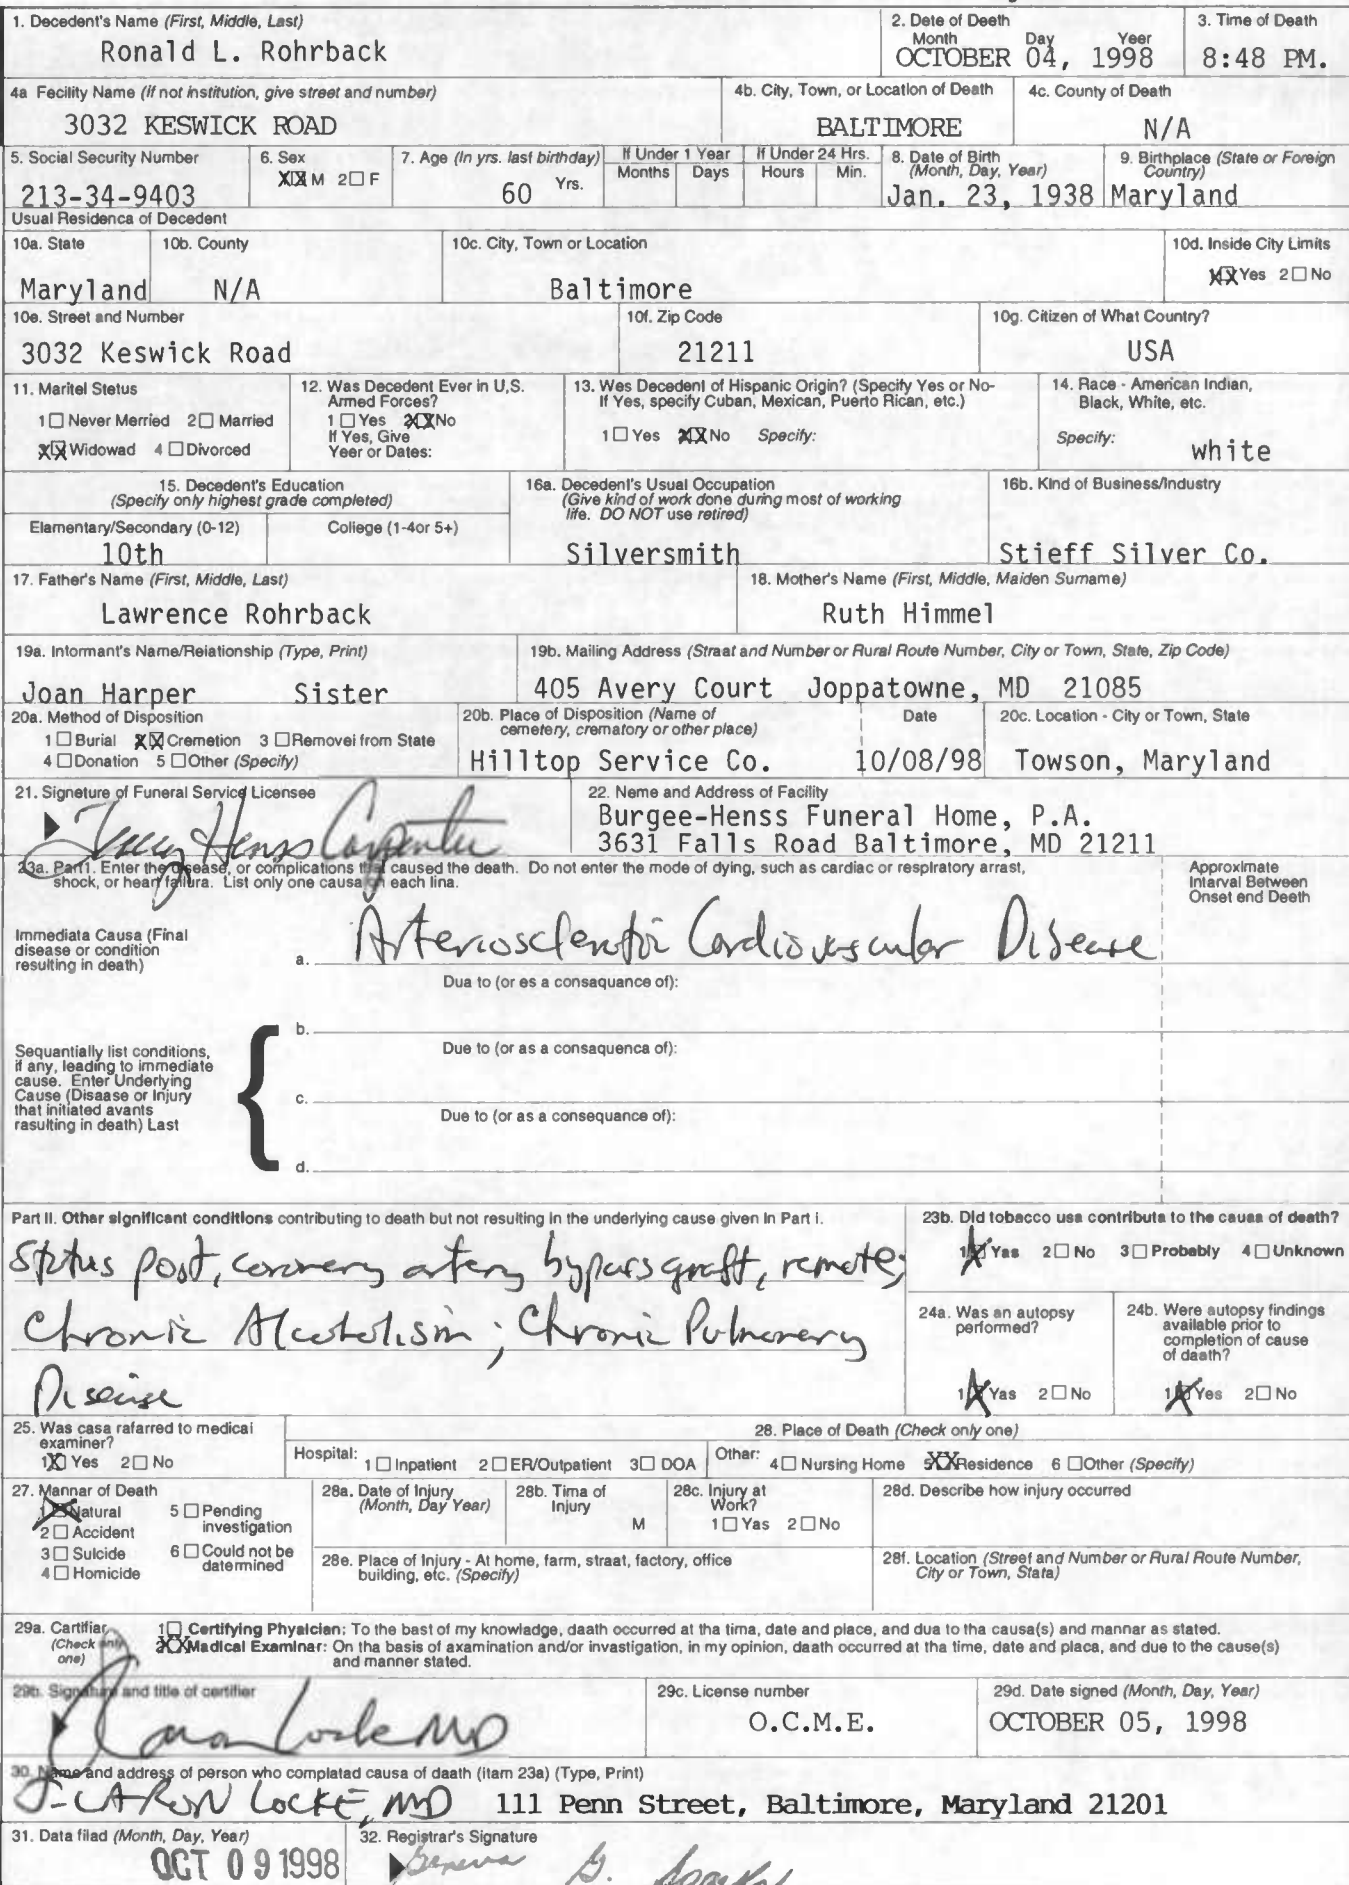 1. Decedent's Name (First, Middle, Last)
Ronald L. Rohrback
2. Dete of Deeth
Month Day Yeer
OCTOBER 04, 1998
3. Time of Death
8:48 PM.
4a Fecility Name (if not institution, give street and number)
3032 KESWICK ROAD
4b. City, Town, or Location of Death
BALTIMORE
4c. County of Death
N/A
5. Social Security Number
213-34-9403
6. Sex
XX M 2☐ F
7. Age (In yrs. last birthday)
60 Yrs.
If Under 1 Year
Months Days
If Under 24 Hrs.
Hours Min.
8. Date of Birth
(Month, Day, Year)
Jan. 23, 1938
9. Birthplace (State or Foreign
Country)
Maryland
Usual Residenca of Decedent
10a. State
Maryland
10b. County
N/A
10c. City, Town or Location
Baltimore
10d. Inside City Limits
XX Yes 2☐ No
10e. Street and Number
3032 Keswick Road
10f. Zip Code
21211
10g. Citizen of What Country?
USA
11. Maritel Stetus
1☐ Never Merried 2☐ Married
XX Widowad 4☐ Divorced
12. Was Decedent Ever in U,S.
Armed Forces?
1☐ Yes 2XX No
If Yes, Give
Yeer or Dates:
13. Wes Decedent of Hispanic Origin? (Specify Yes or No-
If Yes, specify Cuban, Mexican, Puerto Rican, etc.)
1☐ Yes 2XX No Specify:
14. Race - American Indian,
Black, White, etc.
Specify: white
15. Decedent's Education
(Specify only highest grade completed)
Elamentary/Secondary (0-12) College (1-4or 5+)
10th
16a. Decedent's Usual Occupation
(Give kind of work done during most of working
life. DO NOT use retired)
Silversmith
16b. Kind of Business/Industry
Stieff Silver Co.
17. Father's Name (First, Middle, Last)
Lawrence Rohrback
18. Mother's Name (First, Middle, Maiden Surname)
Ruth Himmel
19a. Informant's Name/Relationship (Type, Print)
Joan Harper Sister
19b. Mailing Address (Straat and Number or Rural Route Number, City or Town, State, Zip Code)
405 Avery Court Joppatowne, MD 21085
20a. Method of Disposition
1☐ Burial XX Cremetion 3☐ Removei from State
4☐ Donation 5☐ Other (Specify)
20b. Place of Disposition (Name of
cemetery, crematory or other place)
Hilltop Service Co.
Date
10/08/98
20c. Location - City or Town, State
Towson, Maryland
21. Signeture of Funeral Service Licensee
Tracy Henss Carpenter
22. Neme and Address of Facility
Burgee-Henss Funeral Home, P.A.
3631 Falls Road Baltimore, MD 21211
23a. Part1. Enter the disease, or complications that caused the death. Do not enter the mode of dying, such as cardiac or respiratory arrest,
shock, or heart failura. List only one causa on each lina.
Approximate
Intarval Between
Onset end Deeth
Immediata Causa (Final
disease or condition
resulting in death)
a. Arteriosclerotic Cardiovascular Disease
Dua to (or es a consaquance of):
b.
Due to (or as a consaquenca of):
c.
Due to (or as a consequence of):
d.
Sequantially list conditions,
if any, leading to immediate
cause. Enter Underlying
Cause (Disaase or Injury
that initiated avants
rasulting in death) Last
Part II. Other significant conditions contributing to death but not resulting in the underlying cause given in Part i.
Status post, coronary artery bypass graft, remote;
Chronic Alcoholism; Chronic Pulmonary
Disease
23b. Did tobacco usa contributa to the cauea of death?
1X Yas 2☐ No 3☐ Probably 4☐ Unknown
24a. Was an autopsy
performed?
1X Yas 2☐ No
24b. Were autopsy findings
available prior to
completion of cause
of daath?
1X Yes 2☐ No
25. Was casa rafarred to medicai
examiner?
1X Yes 2☐ No
28. Place of Death (Check only one)
Hospital: 1☐ Inpatient 2☐ ER/Outpatient 3☐ DOA Othar: 4☐ Nursing Home 5XX Residence 6☐ Other (Specify)
27. Mannar of Death
1X Natural
2☐ Accident
3☐ Sulcide
4☐ Homicide
5☐ Pending
investigation
6☐ Could not be
datermined
28a. Date of Injury
(Month, Day Year)
28b. Tima of
Injury
M
28c. Injury at
Work?
1☐ Yas 2☐ No
28d. Describe how injury occurred
28e. Place of Injury - At home, farm, straat, factory, office
building, etc. (Specify)
28f. Location (Street and Number or Rural Route Number,
City or Town, Stata)
29a. Cartifiar
(Check only
one)
1☐ Certifying Phyalcian: To the bast of my knowladge, daath occurred at tha tima, date and place, and dua to tha causa(s) and mannar as stated.
2XX Madical Examinar: On tha basis of axamination and/or investigation, in my opinion, daath occurred at tha time, date and placa, and due to the cause(s)
and manner stated.
29b. Signature and title of certifier
29c. License number
O.C.M.E.
29d. Date signed (Month, Day, Year)
OCTOBER 05, 1998
30. Name and address of person who complated causa of daath (itam 23a) (Type, Print)
J. LARON LOCKE, MD 111 Penn Street, Baltimore, Maryland 21201
31. Data filad (Month, Day, Year)
OCT 09 1998
32. Registrar's Signature
Geneva G. Sparks